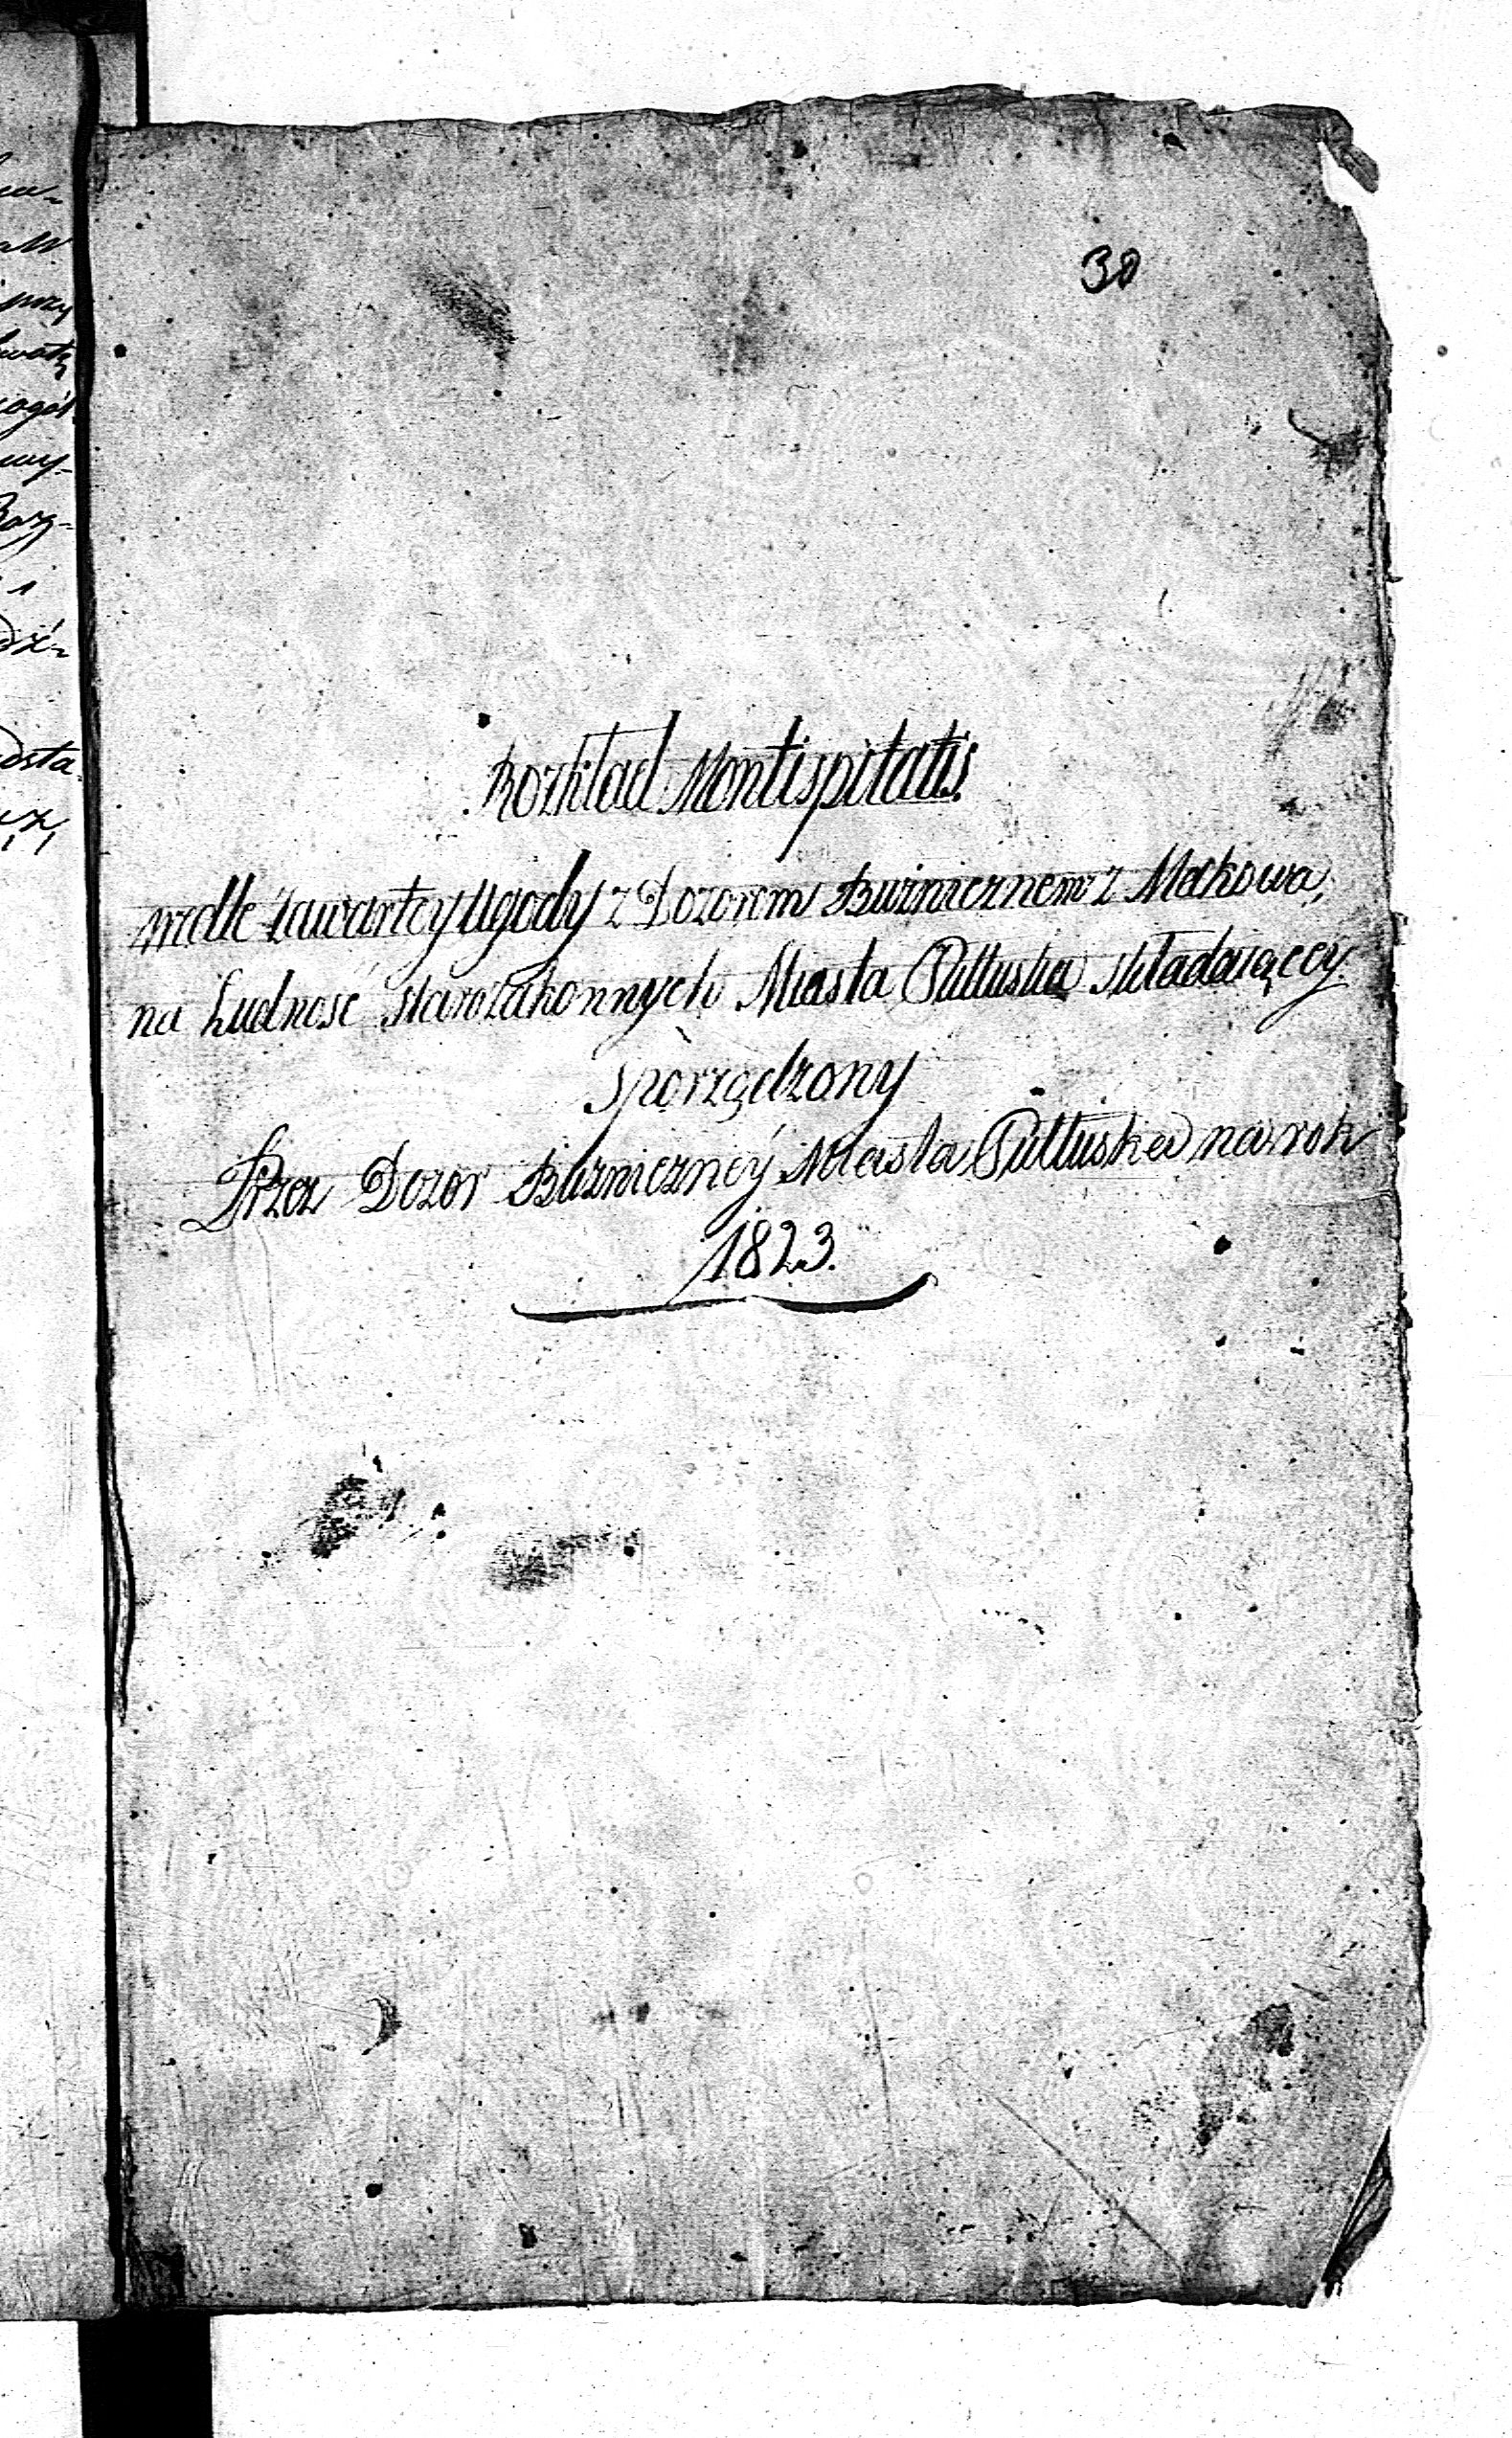 30
Rozkład Montispitatis.
wedle zawartey Ugody z Dozorem Bużnicznem z Makowa,
na Ludność starozakonnych Miasta Pułtuska składaiący
sporządzony
Przez Dozor Bużniczney Miasta Pułtuska na rok
1823.
przy
wy-
dsta